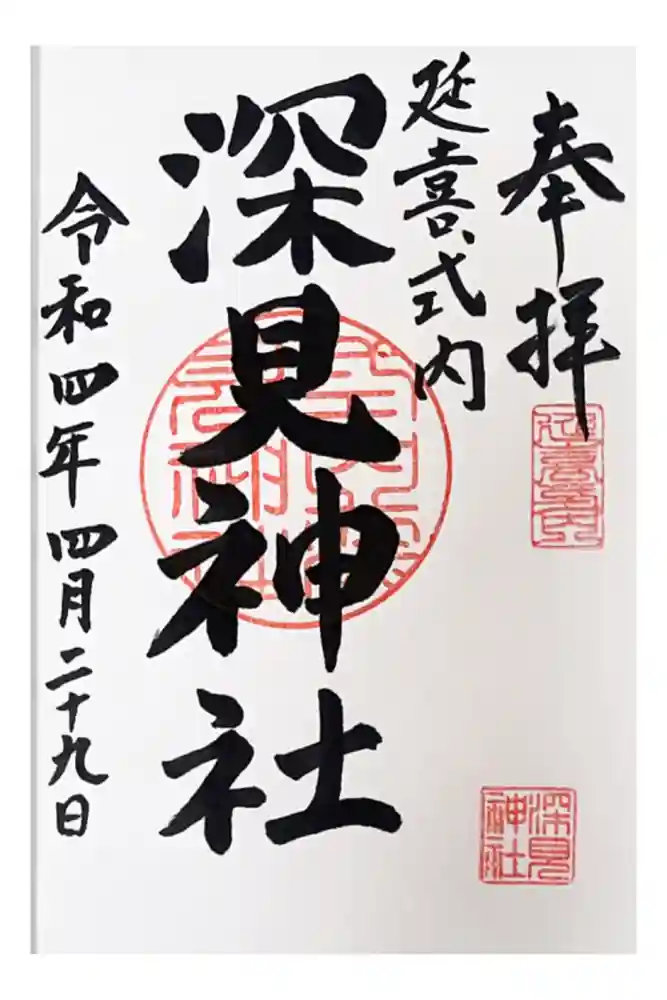 奉拝
延喜式内
深見神社
令和四年四月二十九日
延喜式内
深見
神社